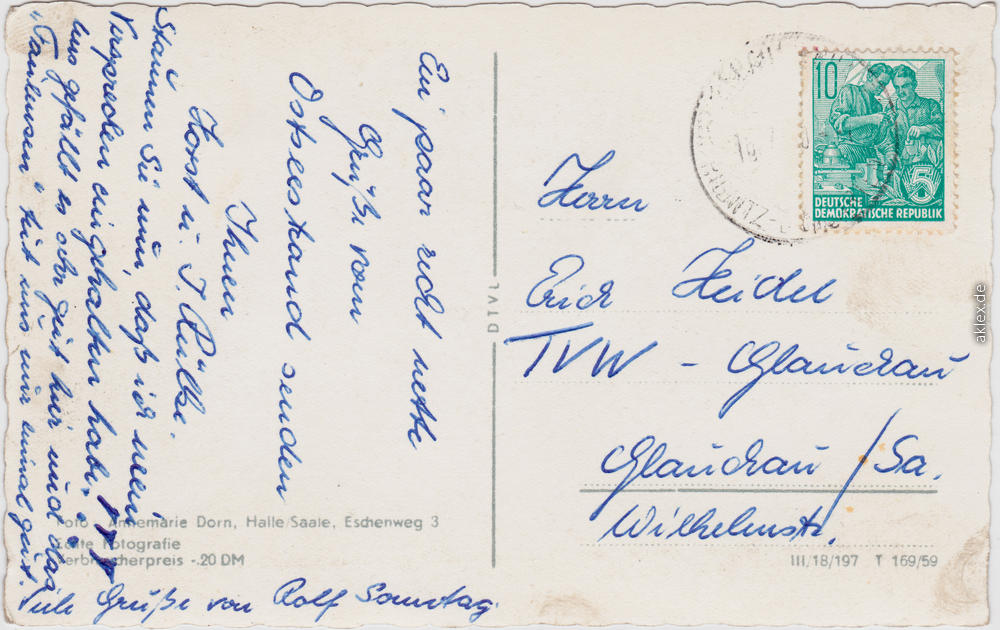 Ein paar recht nette
Grüße vom
Ostseestrand senden
Ihnen
Horst u. J. Rülke.
Staunen Sie nun, daß ich mein
Versprechen eingehalten habe,
Uns gefällt es sehr gut hier und das
„Faulensen“ tut uns nur einmal gut.
Viele Grüße von Rolf Sonntag.
Foto Annemarie Dorn, Halle/Saale, Eschenweg 3
Echte Fotografie
Verbraucherpreis -.20 DM
DTVL
10
5
DEUTSCHE
DEMOKRATISCHE REPUBLIK
Herrn
Erich Heidel
TVW - Glauchau
Glauchau /Sa.
Wilhelmstr.
III/18/197 T 169/59
aklex.de